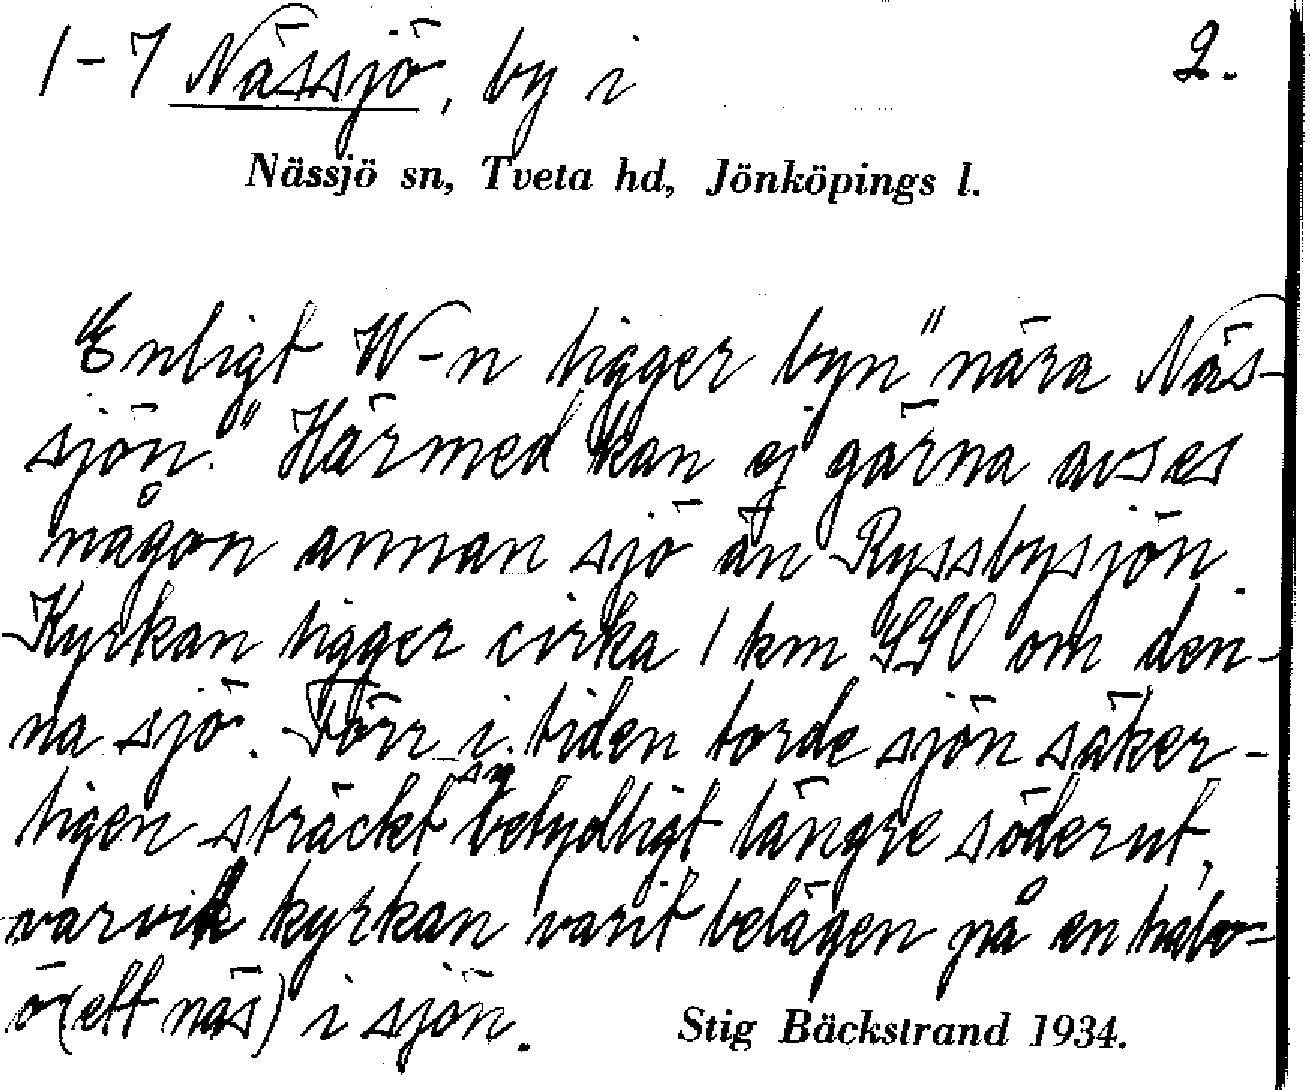 1-7 Nässjö, by i 2.
Nässjö sn, Tveta hd, Jönköpings l.
Enligt W-n ligger byn "nära Näs-
sjön." Härmed kan ej gärna avses
någon annan sjö än Ryssbysjön.
Kyrkan ligger cirka 1 km SSV om den-
na sjö. Förr i tiden torde sjön säker-
ligen sträckt sig betydligt längre söderut,
varvid kyrkan varit belägen på en halv-
ö (ett näs) i sjön.
Stig Bäckstrand 1934.